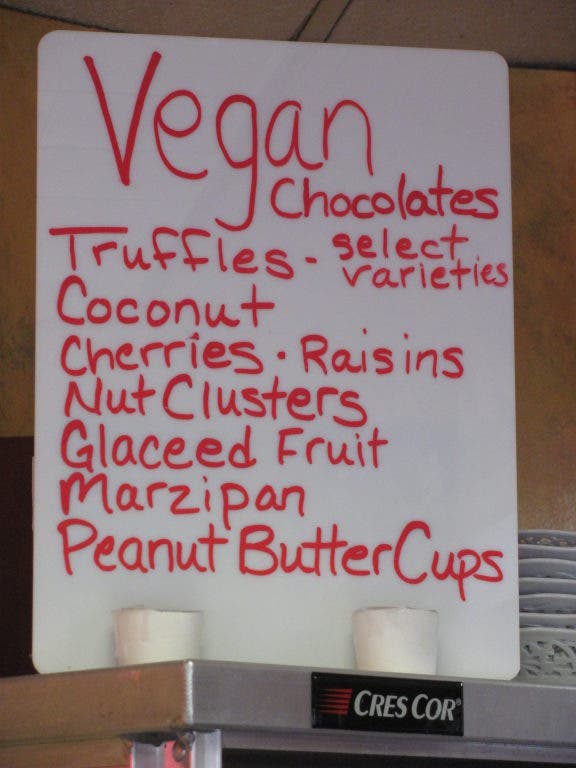 Vegan
Chocolates
Truffles - select varieties
Coconut
Cherries · Raisins
Nut Clusters
Glaceed Fruit
Marzipan
Peanut Butter Cups
CRES COR®